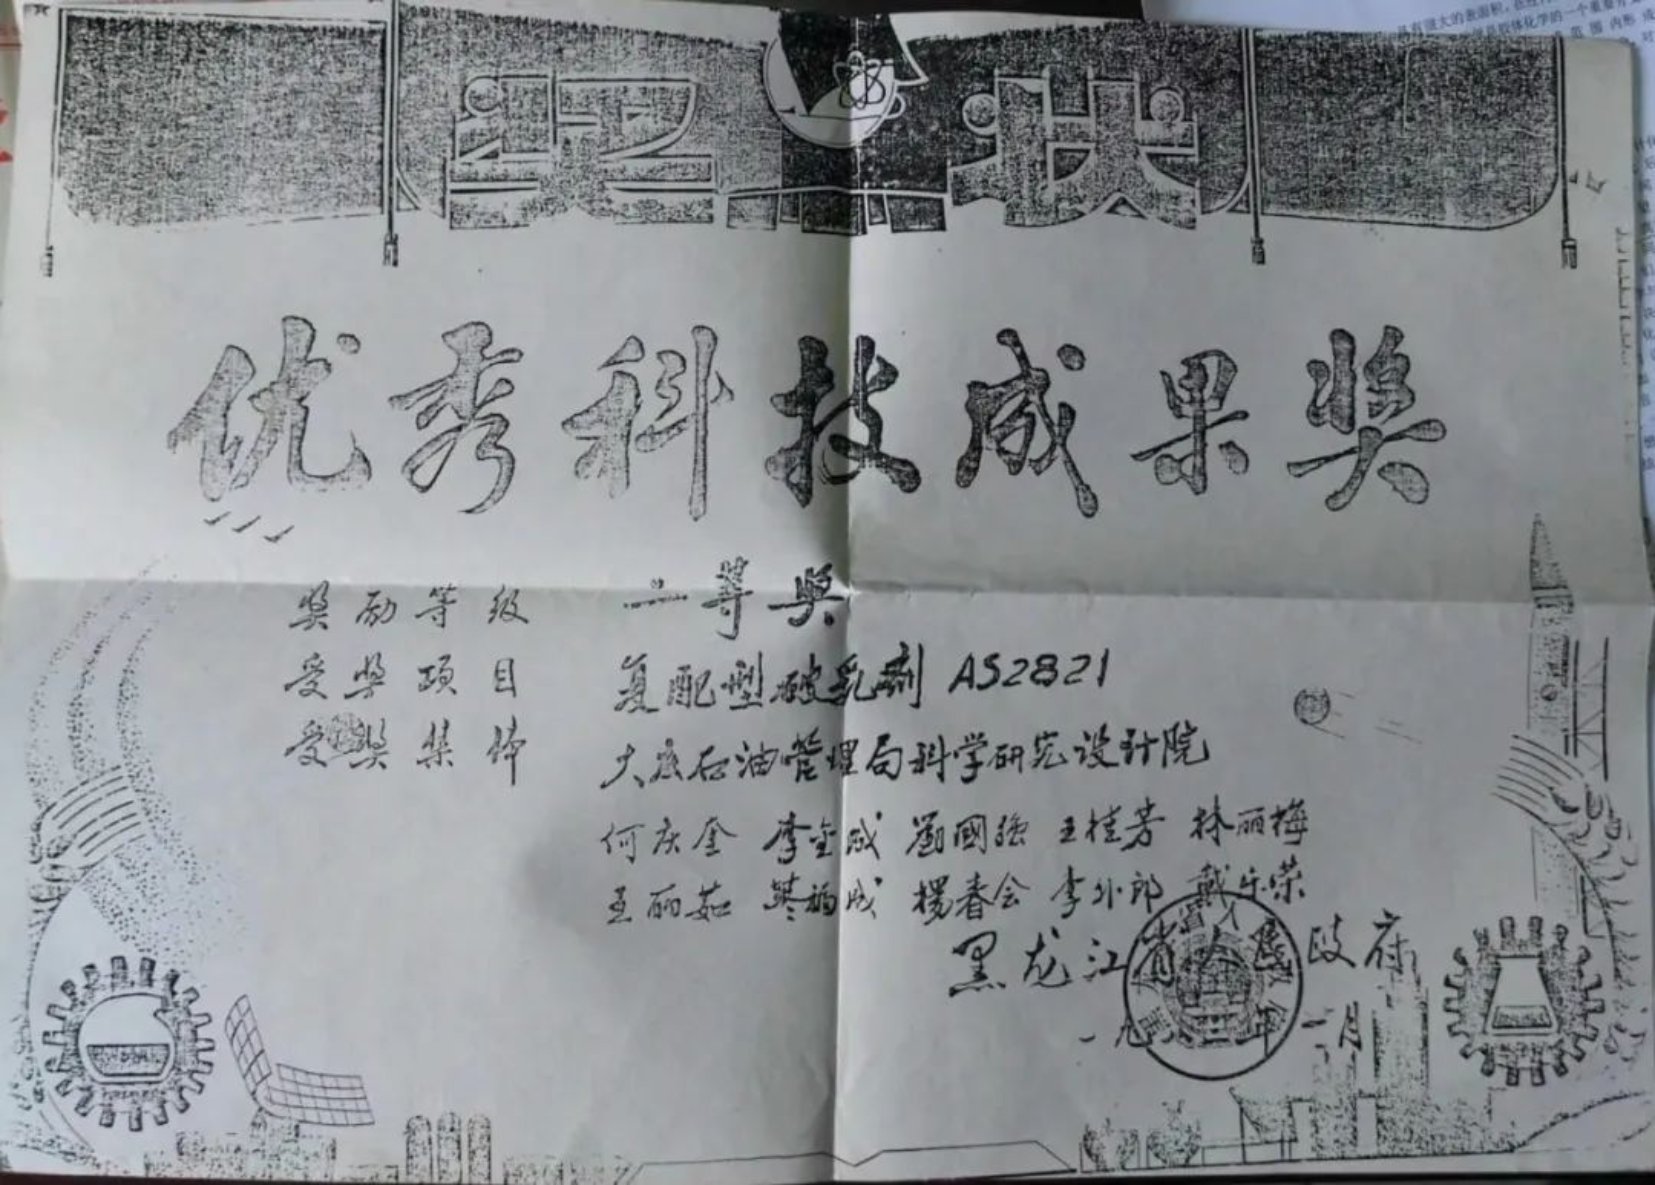 奖状
优秀科技成果奖
奖励等级 二等奖
受奖项目 复配型破乳剂 AS2821
受奖集体 大庆石油管理局科学研究设计院
何庆奎 李金成 刘國強 王桂芳 林丽梅
王丽茹 福成 楊春会 李外郎 戴乐荣
黑龙江省人民政府
一九八三年 月